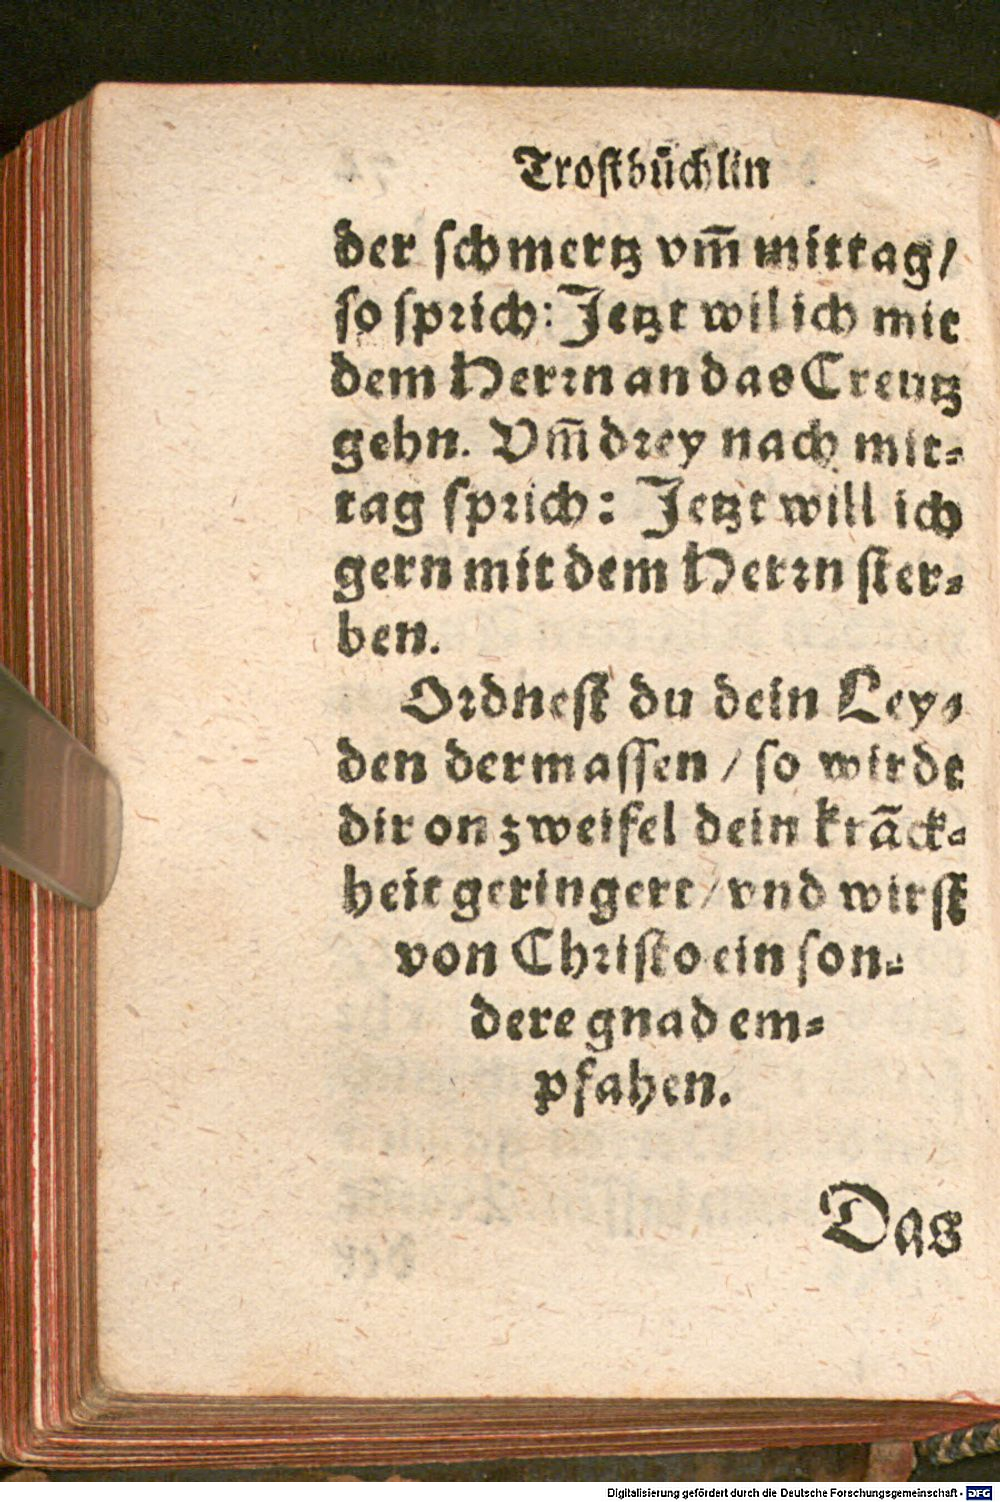 Troſtbuͤchlin
der ſchmertz vm̃ mittag/
ſo ſprich: Jetzt wil ich mit
dem Herꝛn an das Creutz
gehn. Vm̃ drey nach mit⸗
tag ſprich: Jetzt will ich
gern mit dem Herꝛn ſter⸗
ben.
Ordneſt du dein Ley⸗
den dermaſſen / ſo wirdt
dir on zweifel dein kraͤck⸗
heit geringert / vnd wirſt
von Chriſto ein ſon⸗
dere gnad em⸗
pfahen.
Das
Digitalisierung gefördert durch die Deutsche Forschungsgemeinschaft - DFG